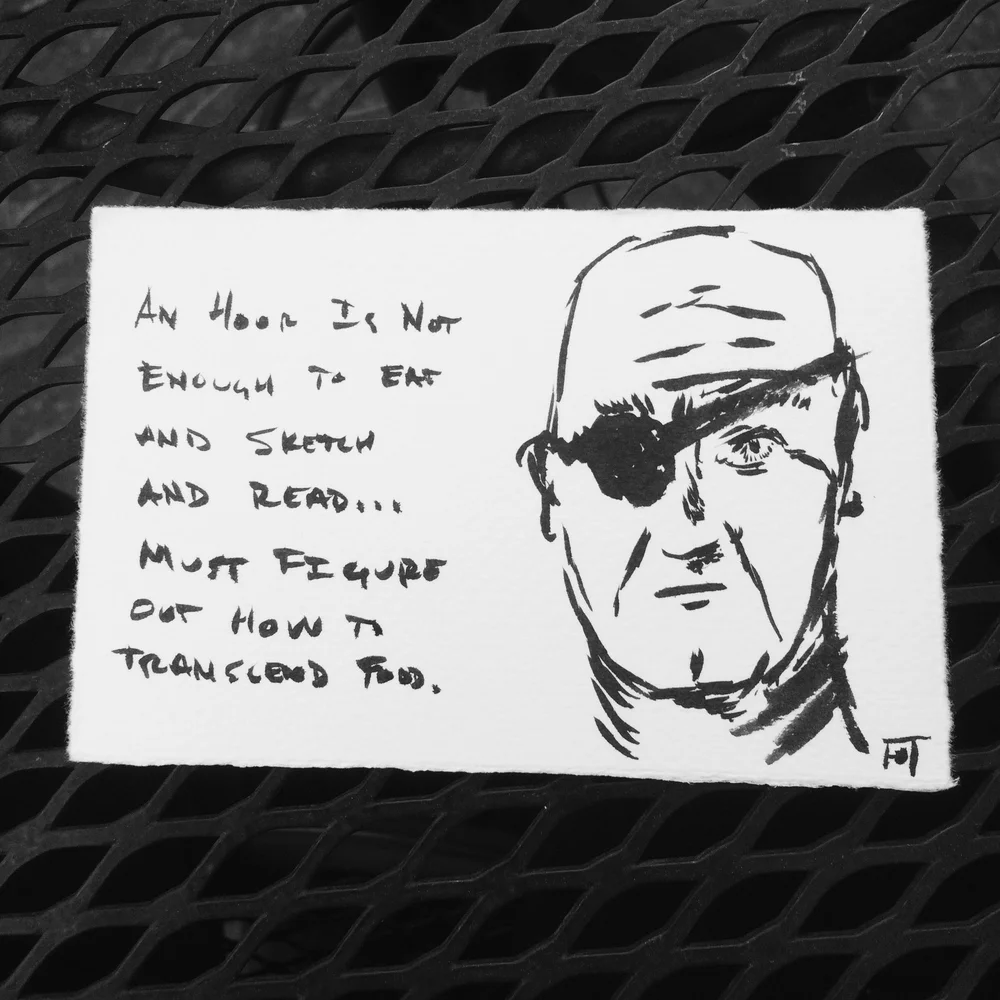 An Hour Is Not
Enough To Eat
And Sketch
And Read...
Must Figure
Out How To
Transcend Food.
FOT